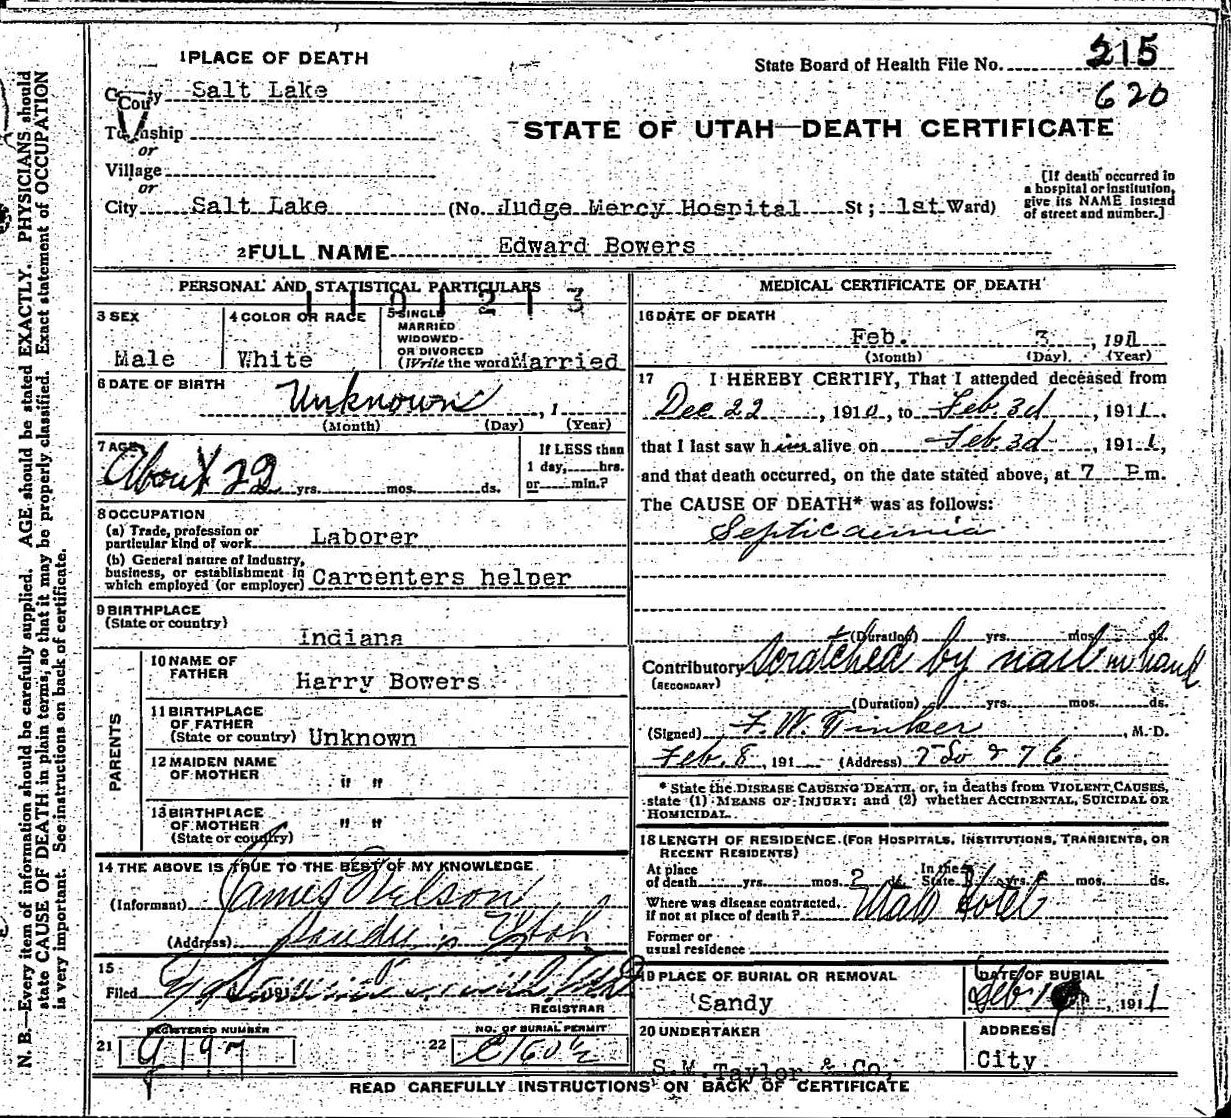 1 PLACE OF DEATH
State Board of Health File No. 215
County Salt Lake
620
Township
or
STATE OF UTAH—DEATH CERTIFICATE
Village
or
City Salt Lake (No. Judge Mercy Hospital St; 1st Ward)
[If death occurred in
a hospital or institution,
give its NAME instead
of street and number.]
2 FULL NAME Edward Bowers
PERSONAL AND STATISTICAL PARTICULARS
3 SEX
Male
4 COLOR OR RACE
White
5 SINGLE
MARRIED
WIDOWED
OR DIVORCED
(Write the word) Married
6 DATE OF BIRTH
Unknown , 1
(Month) (Day) (Year)
7 AGE
About 22 yrs. mos. ds.
If LESS than
1 day, hrs.
or min.?
8 OCCUPATION
(a) Trade, profession or
particular kind of work Laborer
(b) General nature of industry,
business, or establishment in
which employed (or employer) Carpenters helper
9 BIRTHPLACE
(State or country)
Indiana
PARENTS
10 NAME OF
FATHER
Harry Bowers
11 BIRTHPLACE
OF FATHER
(State or country) Unknown
12 MAIDEN NAME
OF MOTHER
" "
13 BIRTHPLACE
OF MOTHER
(State or country)
" "
14 THE ABOVE IS TRUE TO THE BEST OF MY KNOWLEDGE
(Informant) James Nelson
(Address) Sandy Utah
15
Filed 191
REGISTRAR
REGISTERED NUMBER
21
NO. OF BURIAL PERMIT
22
MEDICAL CERTIFICATE OF DEATH
16 DATE OF DEATH
Feb. 3 , 1911
(Month) (Day) (Year)
17 I HEREBY CERTIFY, That I attended deceased from
Dec 22 , 1910, to Feb. 3d , 1911,
that I last saw him alive on Feb 3d , 1911,
and that death occurred, on the date stated above, at 7 P m.
The CAUSE OF DEATH* was as follows:
Septicaemia
(Duration) yrs. mos. ds.
Contributory Scratched by nail in hand
(SECONDARY)
(Duration) yrs. mos. ds.
(Signed) F. W. Tinker , M. D.
Feb. 8, 191 (Address)
* State the DISEASE CAUSING DEATH, or, in deaths from VIOLENT CAUSES,
state (1) MEANS OF INJURY; and (2) whether ACCIDENTAL, SUICIDAL OR
HOMICIDAL.
18 LENGTH OF RESIDENCE (FOR HOSPITALS, INSTITUTIONS, TRANSIENTS, OR
RECENT RESIDENTS)
At place
of death yrs. mos. 2 In the
State yrs. mos. ds.
Where was disease contracted,
if not at place of death? Utah Hotel
Former or
usual residence
19 PLACE OF BURIAL OR REMOVAL
Sandy
DATE OF BURIAL
Feb 1911
20 UNDERTAKER
S.M. Taylor & Co,
ADDRESS
City
READ CAREFULLY INSTRUCTIONS ON BACK OF CERTIFICATE
N. B.—Every item of information should be carefully supplied. AGE should be stated EXACTLY. PHYSICIANS should
state CAUSE OF DEATH in plain terms, so that it may be properly classified. Exact statement of OCCUPATION
is very important. See instructions on back of certificate.